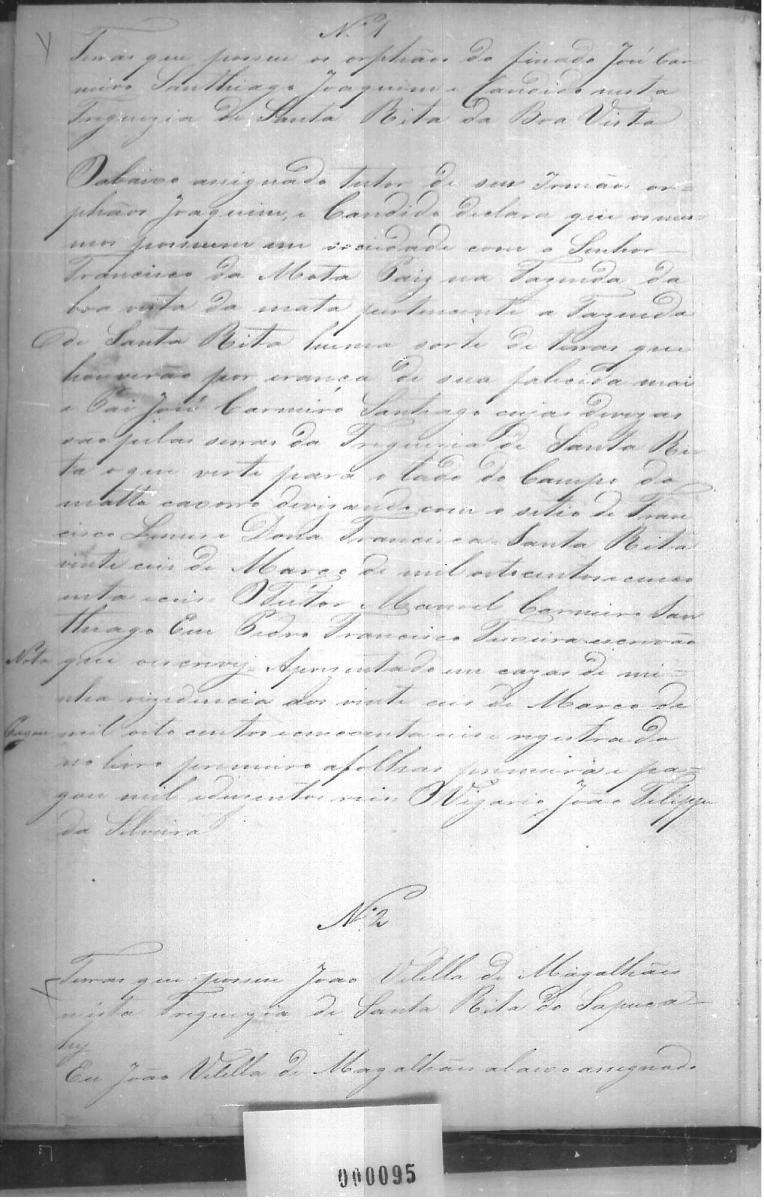 Nº 1
Terras que possue os orphãos do finado José Car
neiro Santhiago Joaquim e Candido nesta
Freguezia de Santa Rita da Boa Vista
O abaixo assignado tutor de seus Irmãos or=
phãos Joaquim, e Candido declara que os mes=
mos possuem em sociedade com o Senhor
Francisco da Mota Paiz na Fazenda da
boa vista da mata pertencente a Fazenda
de Santa Rita huma sorte de terras que
houverão por erança de sua falicida mai
e Pai José Carneiro Santiago cujas devizas
são pelas serras da Freguezia de Santa Ri
ta o que verte para o lado do Campo do
matto caxorro devizando com o sitio de Fran
cisco Lemes e Dona Francisca. Santa Rita
vinte ceis de Março de mil oitocentos e cinco
enta e ceis O Tutor Manoel Carneiro San
thiago Eu Pedro Francisco Teixeira escrivão
Nota que o escrevy. Apresentado em cazas de mi=
nha rezidencia aos vinte ceis de Março de
Pagou mil oito centos e cincoenta e ceis e registrado
no livro primeiro a folhas primeira e pa=
gou mil e duzentos reis O Vigario João Filippe
da Silveira
Nº 2
Terras que possue João Vilella de Magalhães
nesta Freguezia de Santa Rita do Sapuca=
hy
Eu João Vilella de Magalhães abaixo assignado
000095